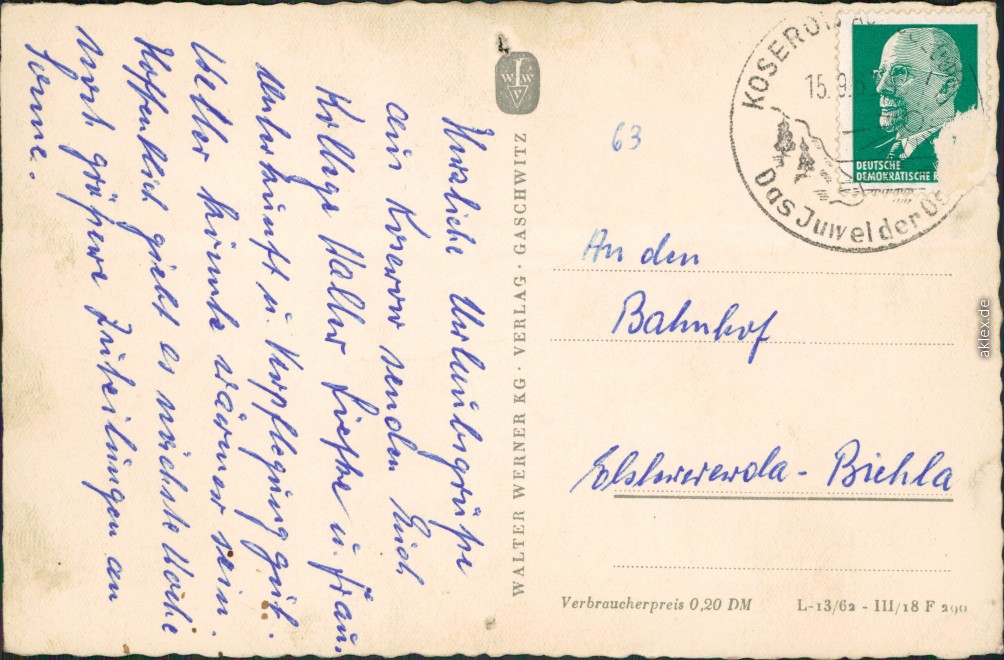 Herzliche Urlaubsgrüße
aus Koserow senden Euch
Kollege Walter u. Frau.
Unterkunft u. Verpflegung gut.
Wetter könnte wärmer sein.
Hoffentlich giebt es nächste Woche
noch größere Zuteilungen an
Sonne.
WALTER WERNER KG · VERLAG · GASCHWITZ
WW
63
KOSEROW
15.9.6
Das Juwel der
DEUTSCHE
DEMOKRATISCHE R
An den
Bahnhof
Elsterwerda - Biehla
Verbraucherpreis 0,20 DM
L-13/62 - III/18 F 290
aklex.de